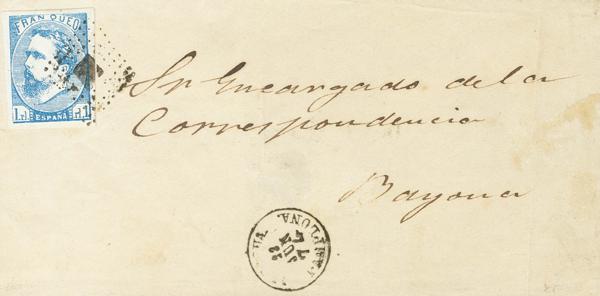 FRANQUEO
1 Rl ESPAÑA Rl 1
Sr Encargado de la
Correspondencia
Bayona